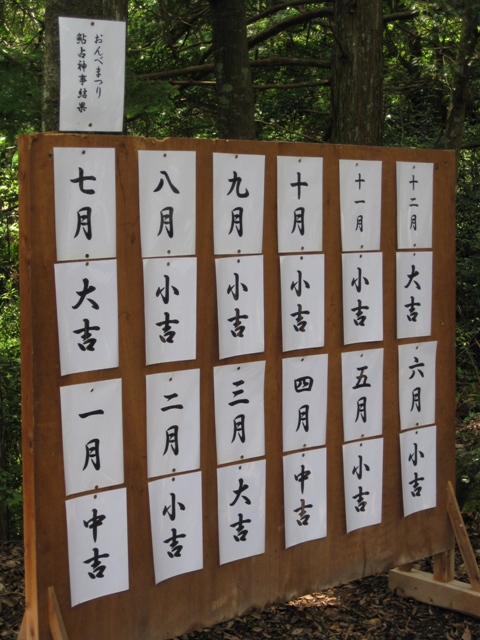 おんべまつり
鮎占神事結果
七月
八月
九月
十月
十一月
十二月
大吉
小吉
小吉
小吉
小吉
大吉
一月
二月
三月
四月
五月
六月
中吉
小吉
大吉
中吉
小吉
小吉